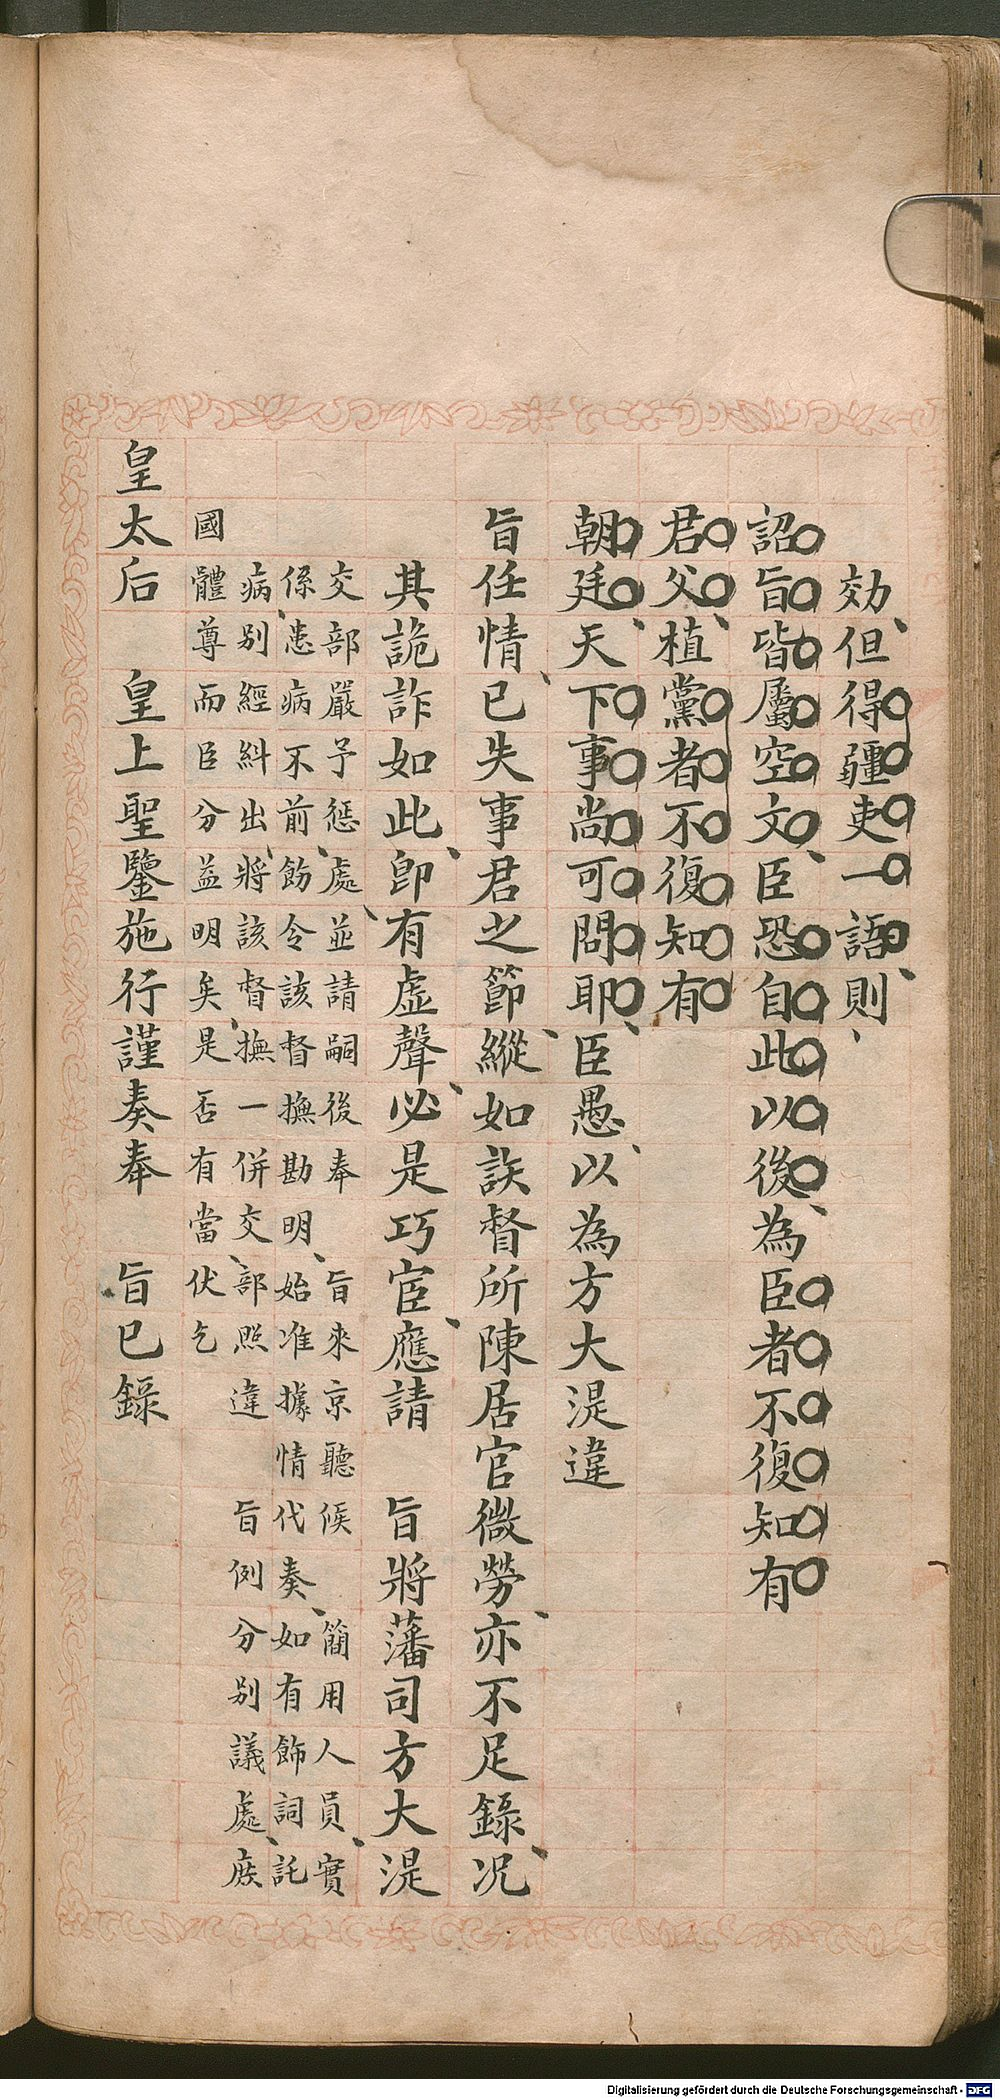 効但得疆吏一語則
詔旨皆屬空文臣恐自此以後為臣者不復知有
君父植黨者不復知有
朝廷天下事尚可問耶臣愚以為方大湜違
旨任情已失事君之節縱如該督所陳居官微勞亦不足錄况
其詭詐如此卽有虛聲必是巧宦應請旨將藩司方大湜
交部嚴予懲處並請嗣後奉旨來京聽候簡用人員實
係患病不前飭令該督撫勘明始准據情代奏如有飾詞託
病別經糾出將該督撫一併交部照違旨例分別議處庶
國體尊而臣分益明矣是否有當伏乞
皇太后皇上聖鑒施行謹奏奉旨已錄
Digitalisierung gefördert durch die Deutsche Forschungsgemeinschaft - DFG